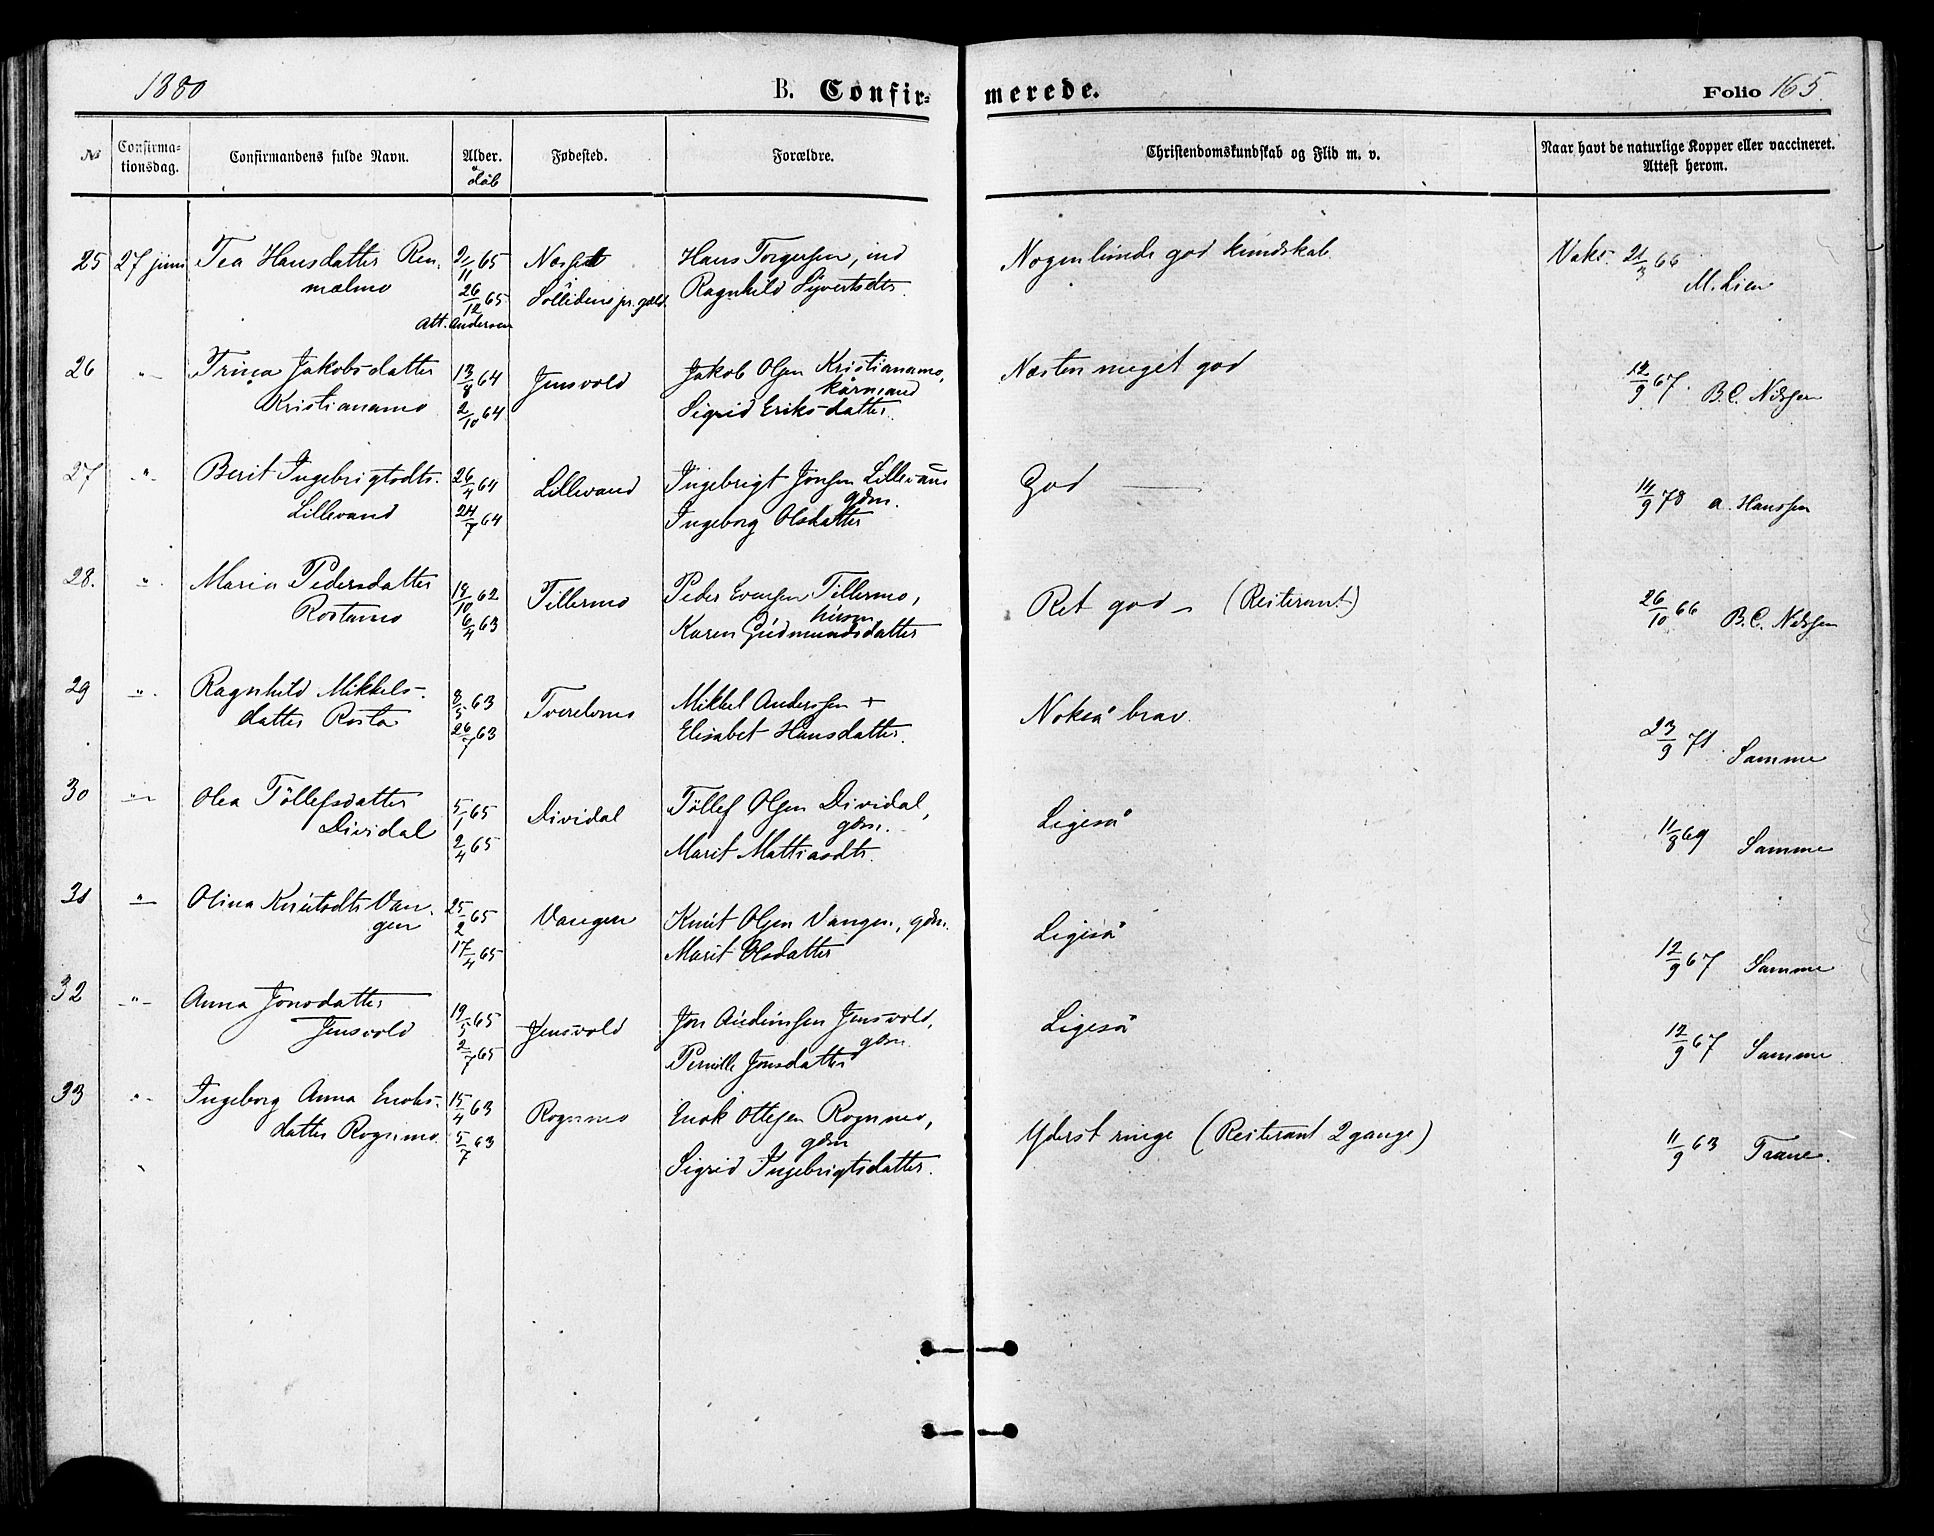 1880 B. Confir= merede. Folio 165.
No Confirma-tionsdag. Confirmandens fulde Navn. Alder. Fødested. Forældre. Christendomskundskab og Flid m. v. Naar havt de naturlige Kopper eller vaccineret. Attest herom.
dåb
25 27 juni Tea Hansdatter Ren- 2/11 65 Hans Torgersen, ind Nogenlunde god kundskab. Vaks. 21/3 66
mælmo 26/12 65 Sollidens pr. gjeld. Ragnhild Syvertsdtr. M. Lien
Att. Andersen
26 " Trina Jakobsdatter 13/8 64 Jensvold Jakob Olsen Kristianamo, Næsten meget god 12/9 67. B.C. Nilssen
Kristianamo 2/10 64 kårmand
Sigrid Eriksdatter.
27 " Berit Ingebrigtsdtr. 26/4 64 Lillevand Ingebrigt Jonsen Lillevand God — 14/9 78 A. Hanssen
Lillevand 24/7 64 gdm.
Ingeborg Olsdatter
28. " Maria Pedersdatter 13/10 62 Tillermo Peder Evensen Tillermo, Ret god - (Reiterant) 26/10 66 B.C. Nilssen
Rostamo 6/4 63 husm
Karen Gudmundsdatter
29 " Ragnhild Mikkels- 8/5 63 Tverelvmo Mikkel Anderssen + Nokså brav. 23/9 71. Samme
datter Rosta 26/7 63 Elisabet Hansdatter.
30 " Olea Tøllefsdatter 5/1 65 Dividal Tøllef Olsen Dividal, Ligeså 11/8 69 Samme
Dividal 2/4 65 gdm.
Marit Mattiasdtr.
31 " Olina Knutsdtr Van- 25/2 65 Vangen Knut Olsen Vangen, gdm. Ligeså 12/9 67 Samme
gen 17/4 65 Marit Olsdatter
32 " Anna Jonsdatter 19/5 65 Jensvold Jon Audunsen Jensvold, Ligeså 12/9 67 Samme
Jensvold 2/7 65 gdm.
Pernille Jonsdatter
33 " Ingeborg Anna Enoks- 15/4 63 Rognmo Enok Ottesen Rognmo, Yderst ringe (Reiterant 2 gange) 11/9 63 Traane.
datter Rognmo. 5/7 63 gdm
Sigrid Ingebrigtsdatter.